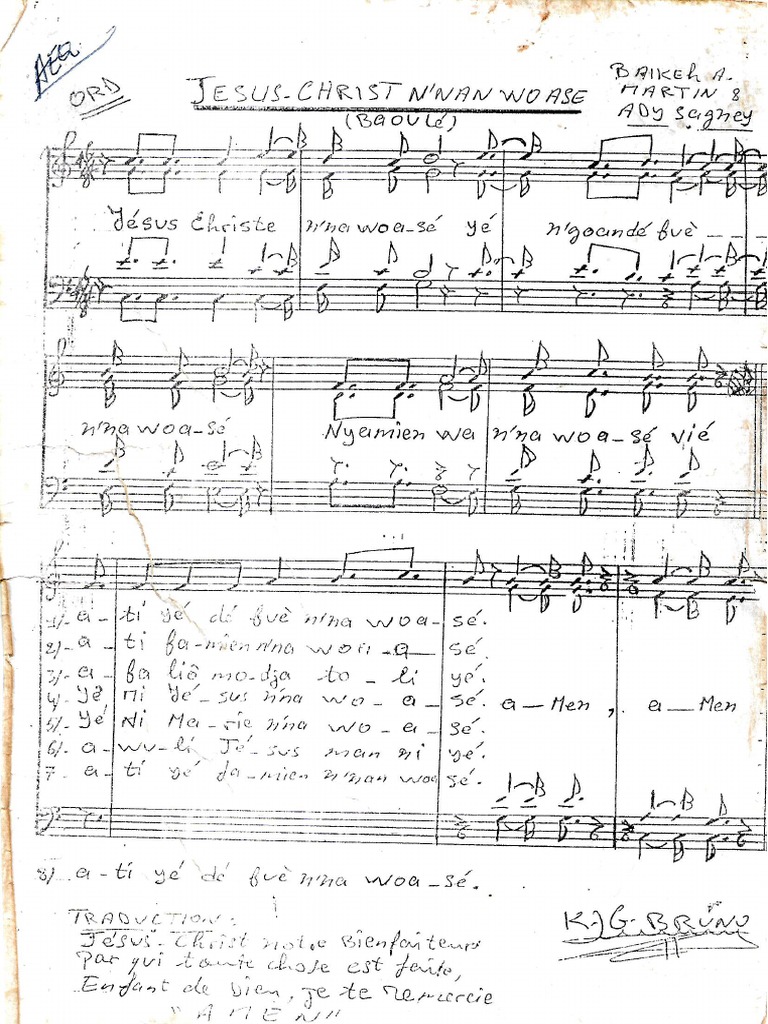 ORD
JESUS-CHRIST N'NAN WO ASE
(BAOULÉ)
BAIKEH A.
MARTIN &
ADY Sagney
Yésus Christe n'na woa-sé yé n'goandé fuè
n'na woa-sé Nyamien wa n'na woa-sé vié
1/- a-ti yé dé fuè n'na woa-sé.
2/- a-ti fa-mien n'na wou-a-sé
3/- a-fa liô mo-dja to-li yé.
4/- yé Ni Yé-sus n'na wo-a-sé. a-Men, a-Men
5/- yé Ni Ma-rie n'na wo-a-sé.
6/- a-wu-li Jé-sus man ni yé.
7- a-ti yé da-mien n'nan woa sé.
8/- a-ti yé dé fuè n'na woa-sé.
TRADUCTION:
Jésus-Christ notre Bienfaiteur
Par qui toute chose est faite,
Enfant de bien, je te remercie
"AMEN"
K.JG-BRUNO